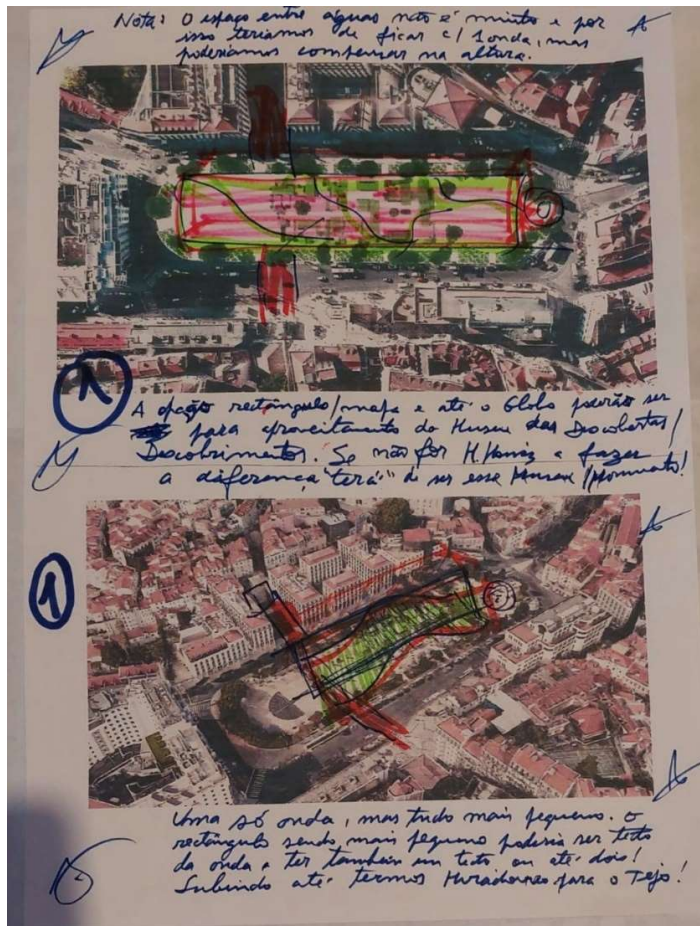 Nota: O espaço entre águas não é muito e por
isso teríamos de ficar c/ 1 onda, mas
poderíamos compensar na altura.
1
A opção rectângulo/mapa e até o Globo poderão ser
para aproveitamento do Museu das Descobertas/
Descobrimentos. Se não for H. a fazer
a diferença "terá" de ser esse Museu/Monumento!
1
Uma só onda, mas tudo mais pequeno. O
rectângulo sendo mais pequeno poderia ser tecto
da onda e ter também um tecto ou até dois!
Subindo até termos Miradouros para o Tejo!